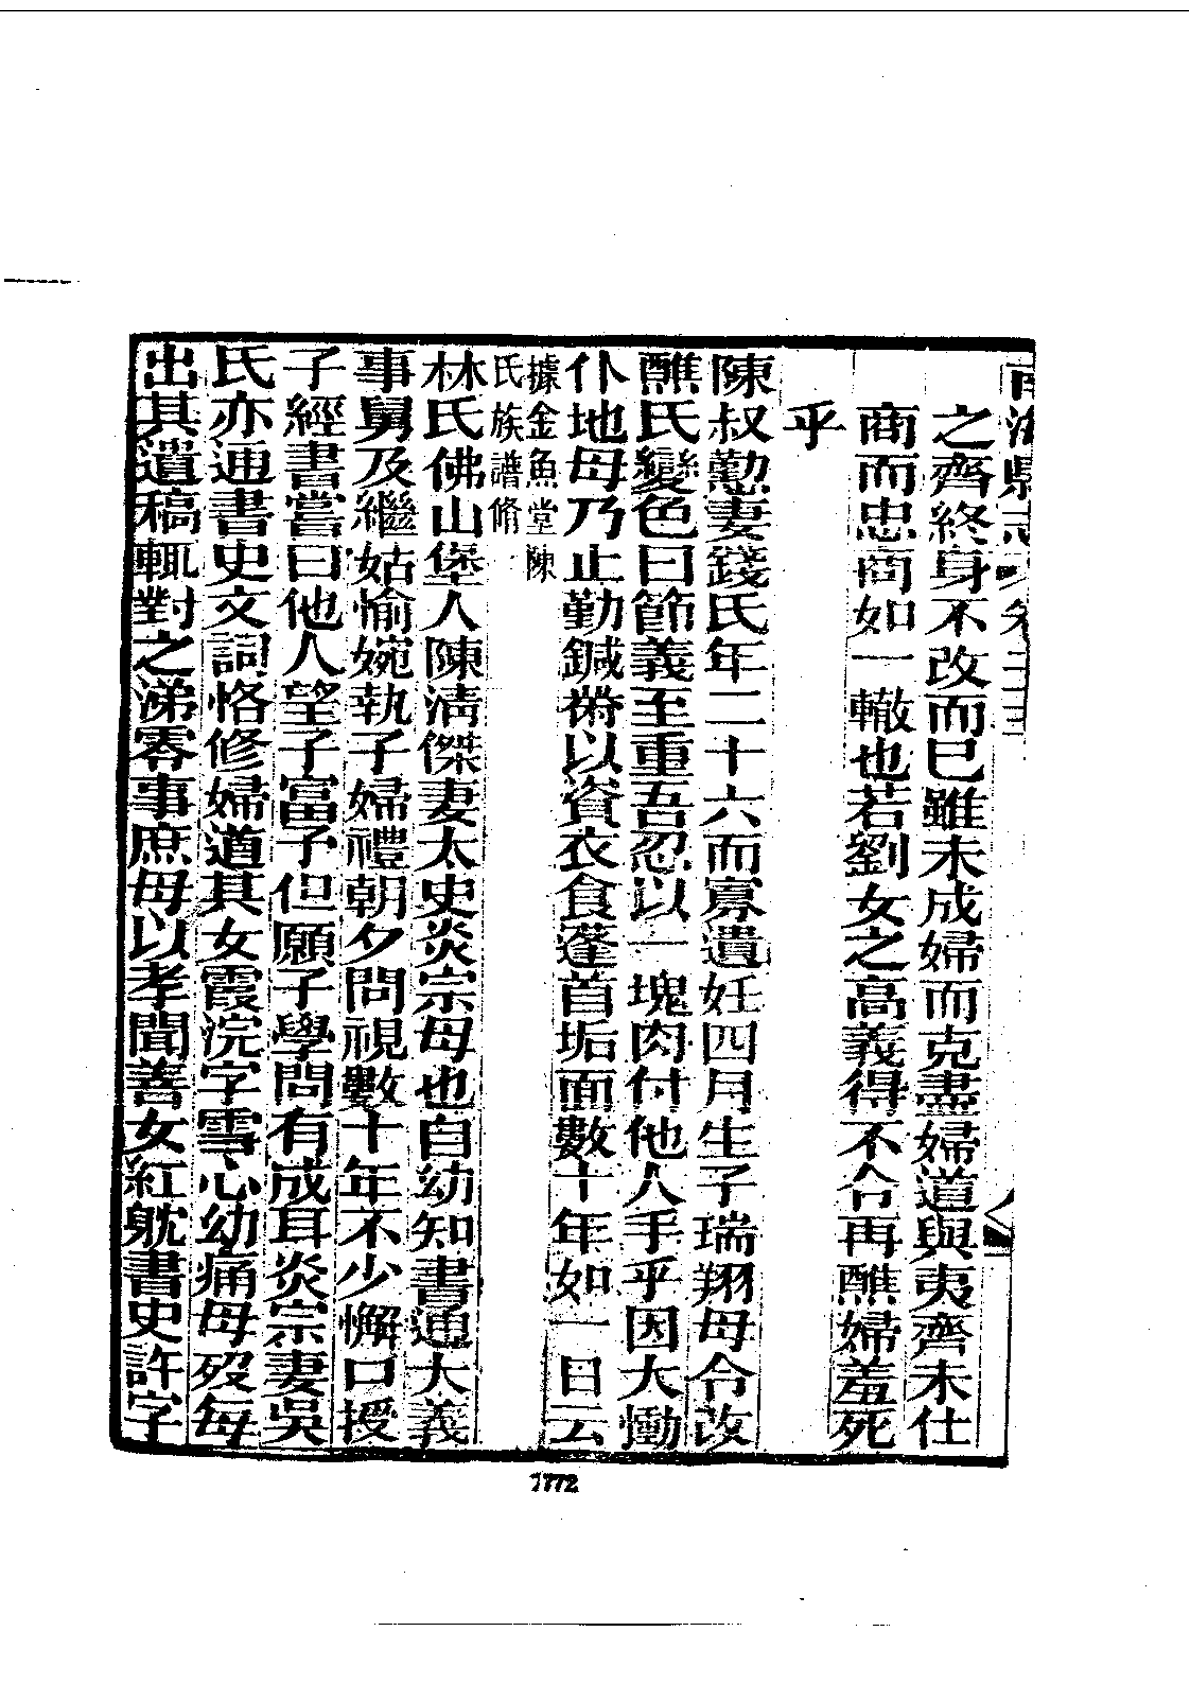 南海縣志 卷二十三
之齊終身不改而巳雖未成婦而克盡婦道與夷齊未仕
商而忠商如一轍也若劉女之高義得不令再醮婦羞死
乎
陳叔勤妻錢氏年二十六而寡遺妊四月生子瑞翔母令改
醮氏變色曰節義至重吾忍以一塊肉付他人手乎因大慟
仆地母乃止勤鍼黹以資衣食蓬首垢面數十年如一日云
據金魚堂陳
氏族譜脩
林氏佛山堡人陳清傑妻太史炎宗母也自幼知書通大義
事舅及繼姑愉婉執子婦禮朝夕問視數十年不少懈口授
子經書嘗曰他人望子富子但願子學問有成耳炎宗妻吳
氏亦通書史文詞恪修婦道其女霞浣字雪心幼痛母歿每
出其遺稿輒對之涕零事庶母以孝聞善女紅躭書史許字
7772